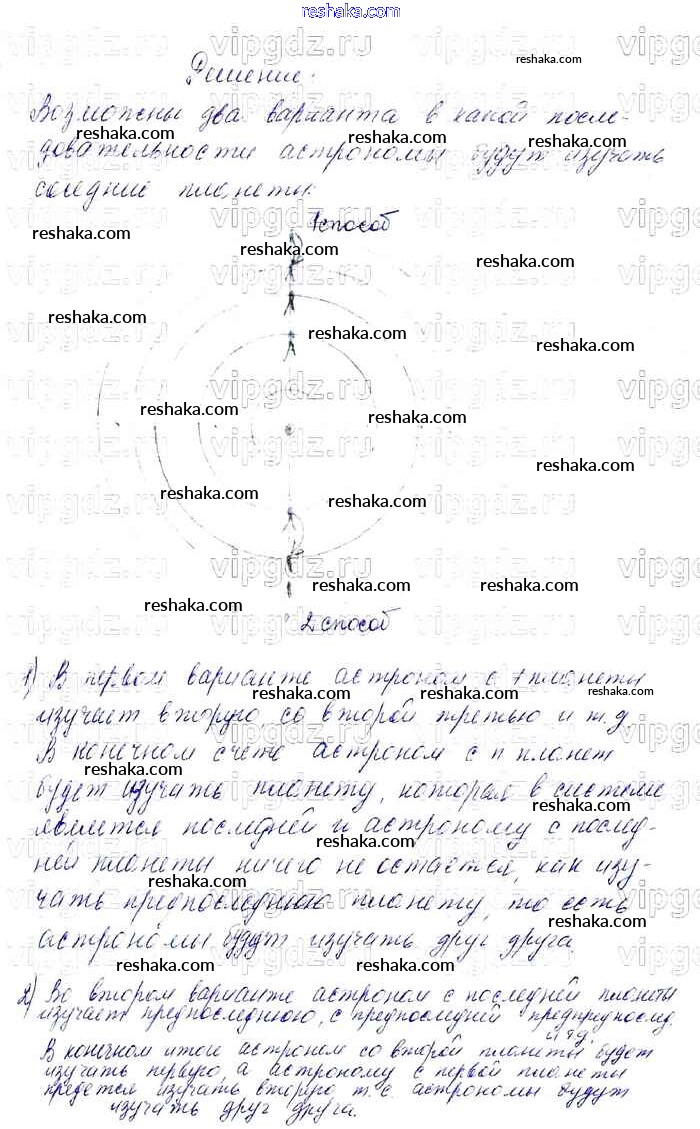 reshaka.com
Решение.
Возможны два варианта в какой после-
довательности астрономы будут изучать
соседние планеты.
1 способ
2 способ
1) В первом варианте астроном с 1 планеты
изучает вторую со второй третью и т.д
В конечном счете астроном с n планет
будет изучать планету, которая в системе
является последней и астроному с послед-
ней планеты ничего не остается, как изу-
чать предпоследнюю планету, то есть
астрономы будут изучать друг друга.
2) Во втором варианте астроном с последней планеты
изучает предпоследнюю, с предпоследней предпредпослед.
и т.д.
В конечном итоге астроном со второй планеты будет
изучать первую, а астроному с первой планеты
придется изучать вторую т.е. астрономы будут
изучать друг друга.